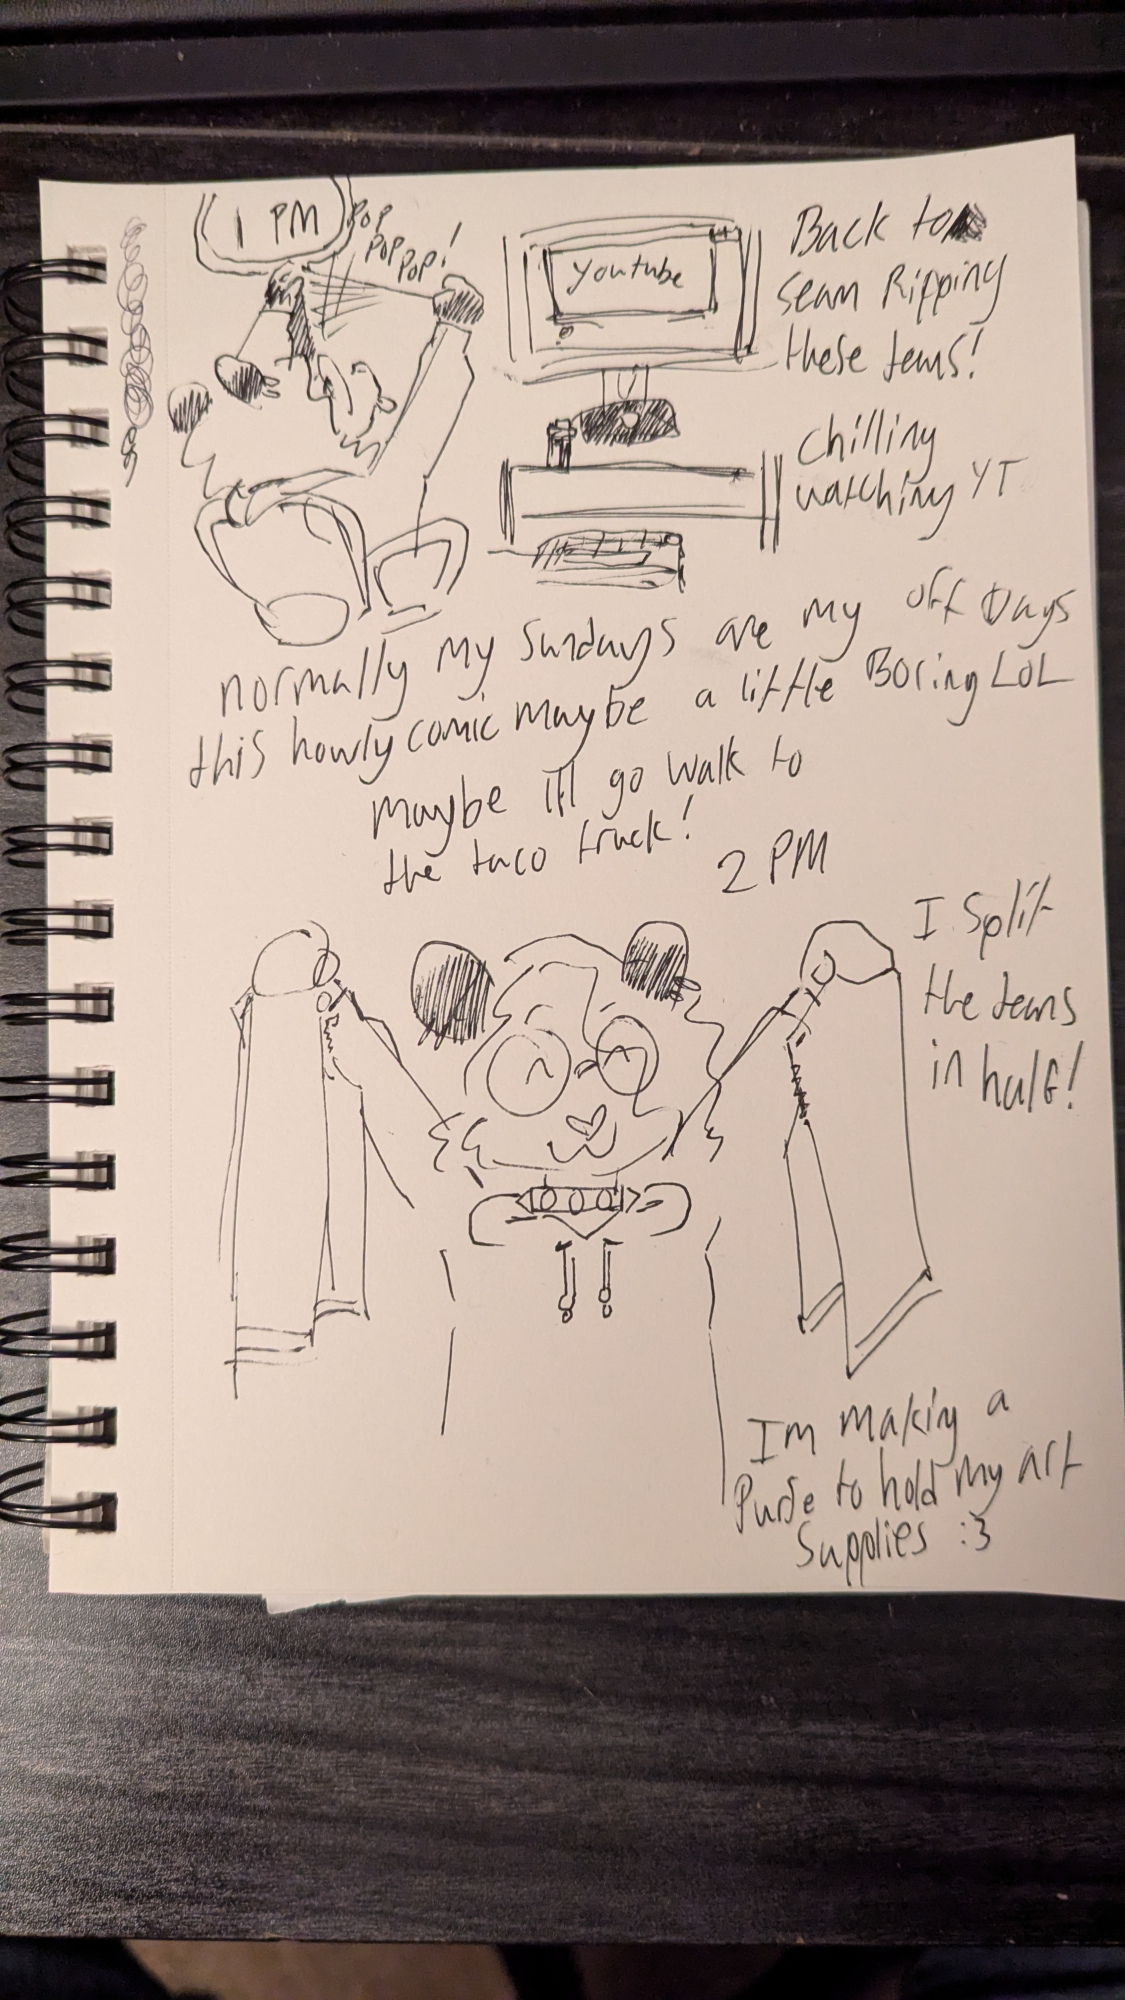 1 PM
POP
POP
POP!
Youtube
Back to
seam Ripping
these jeans!
chilling
watching YT
normally my Sundays are my off Days
this howrly comic maybe a little Boring LOL
maybe ill go walk to
the taco truck!
2 PM
I split
the jeans
in half!
Im making a
Purse to hold my art
Supplies :3